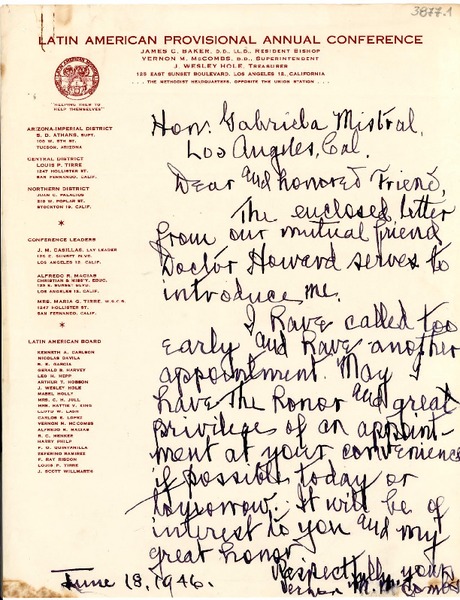 3877.1
LATIN AMERICAN PROVISIONAL ANNUAL CONFERENCE
JAMES C. BAKER, D.D., LL.D., RESIDENT BISHOP
VERNON M. McCOMBS, D.D., SUPERINTENDENT
J. WESLEY HOLE, TREASURER
125 EAST SUNSET BOULEVARD, LOS ANGELES 12, CALIFORNIA
... THE METHODIST HEADQUARTERS, OPPOSITE THE UNION STATION ...
"HELPING MEN TO
HELP THEMSELVES"
ARIZONA-IMPERIAL DISTRICT
S. D. ATHANS, SUPT.
TUCSON, ARIZONA
CENTRAL DISTRICT
LOUIS P. TIRRE
1247 HOLLISTER ST.
SAN FERNANDO, CALIF.
NORTHERN DISTRICT
JUAN C. PALACIOS
219 W. POPLAR ST.
STOCKTON 19, CALIF.
CONFERENCE LEADERS
J. M. CASILLAS, LAY LEADER
125 E. SUNSET BLVD.
LOS ANGELES 12, CALIF.
ALFREDO R. MACIAS
125 E. SUNSET BLVD.
LOS ANGELES 12, CALIF.
MRS. MARIA G. TIRRE, W.S.C.S.
1247 HOLLISTER ST.
SAN FERNANDO, CALIF.
LATIN AMERICAN BOARD
KENNETH A. CARLSON
NICOLAS DAVILA
N. E. GARCIA
GERALD B. HARVEY
LEO H. HEPP
ARTHUR T. HOBSON
J. WESLEY HOLE
MABEL HOLLY
MRS. C. H. JULL
MRS. HATTIE V. KING
LLOYD W. LASH
CARLOS K. LOPEZ
VERNON M. McCOMBS
ALFREDO R. MACIAS
R. C. MENKER
HARRY PHILP
F. G. QUINTANILLA
ZEFERINO RAMIREZ
F. RAY RISDON
LOUIS P. TIRRE
J. SCOTT WILLMARTH
Hon. Gabriela Mistral,
Los Angeles, Cal.
Dear and honored Friend,
The enclosed letter
from our mutual friend
Doctor Howard serves to
introduce me.
I have called too
early and have another
appointment. May I
have the honor and great
privilege of an appoint-
ment at your convenience
if possible today or
tomorrow. It will be of
interest to you and my
great honor.
Respectfully yours
June 18, 1946. Vernon M. McCombs